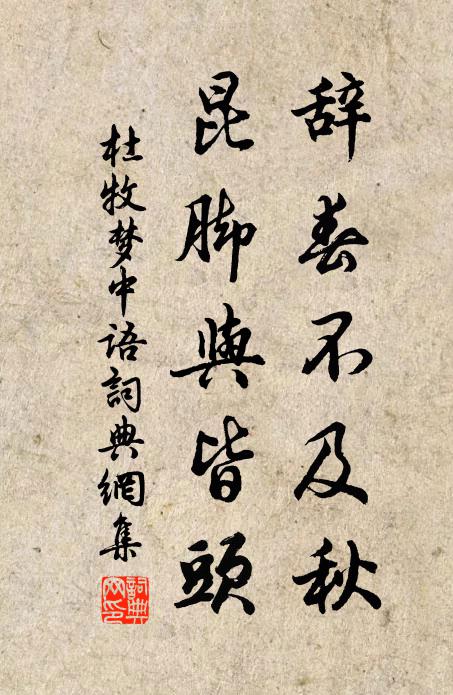 辞春不及秋
昆脚與皆頭
杜牧梦中语詞典網集
詞典网印